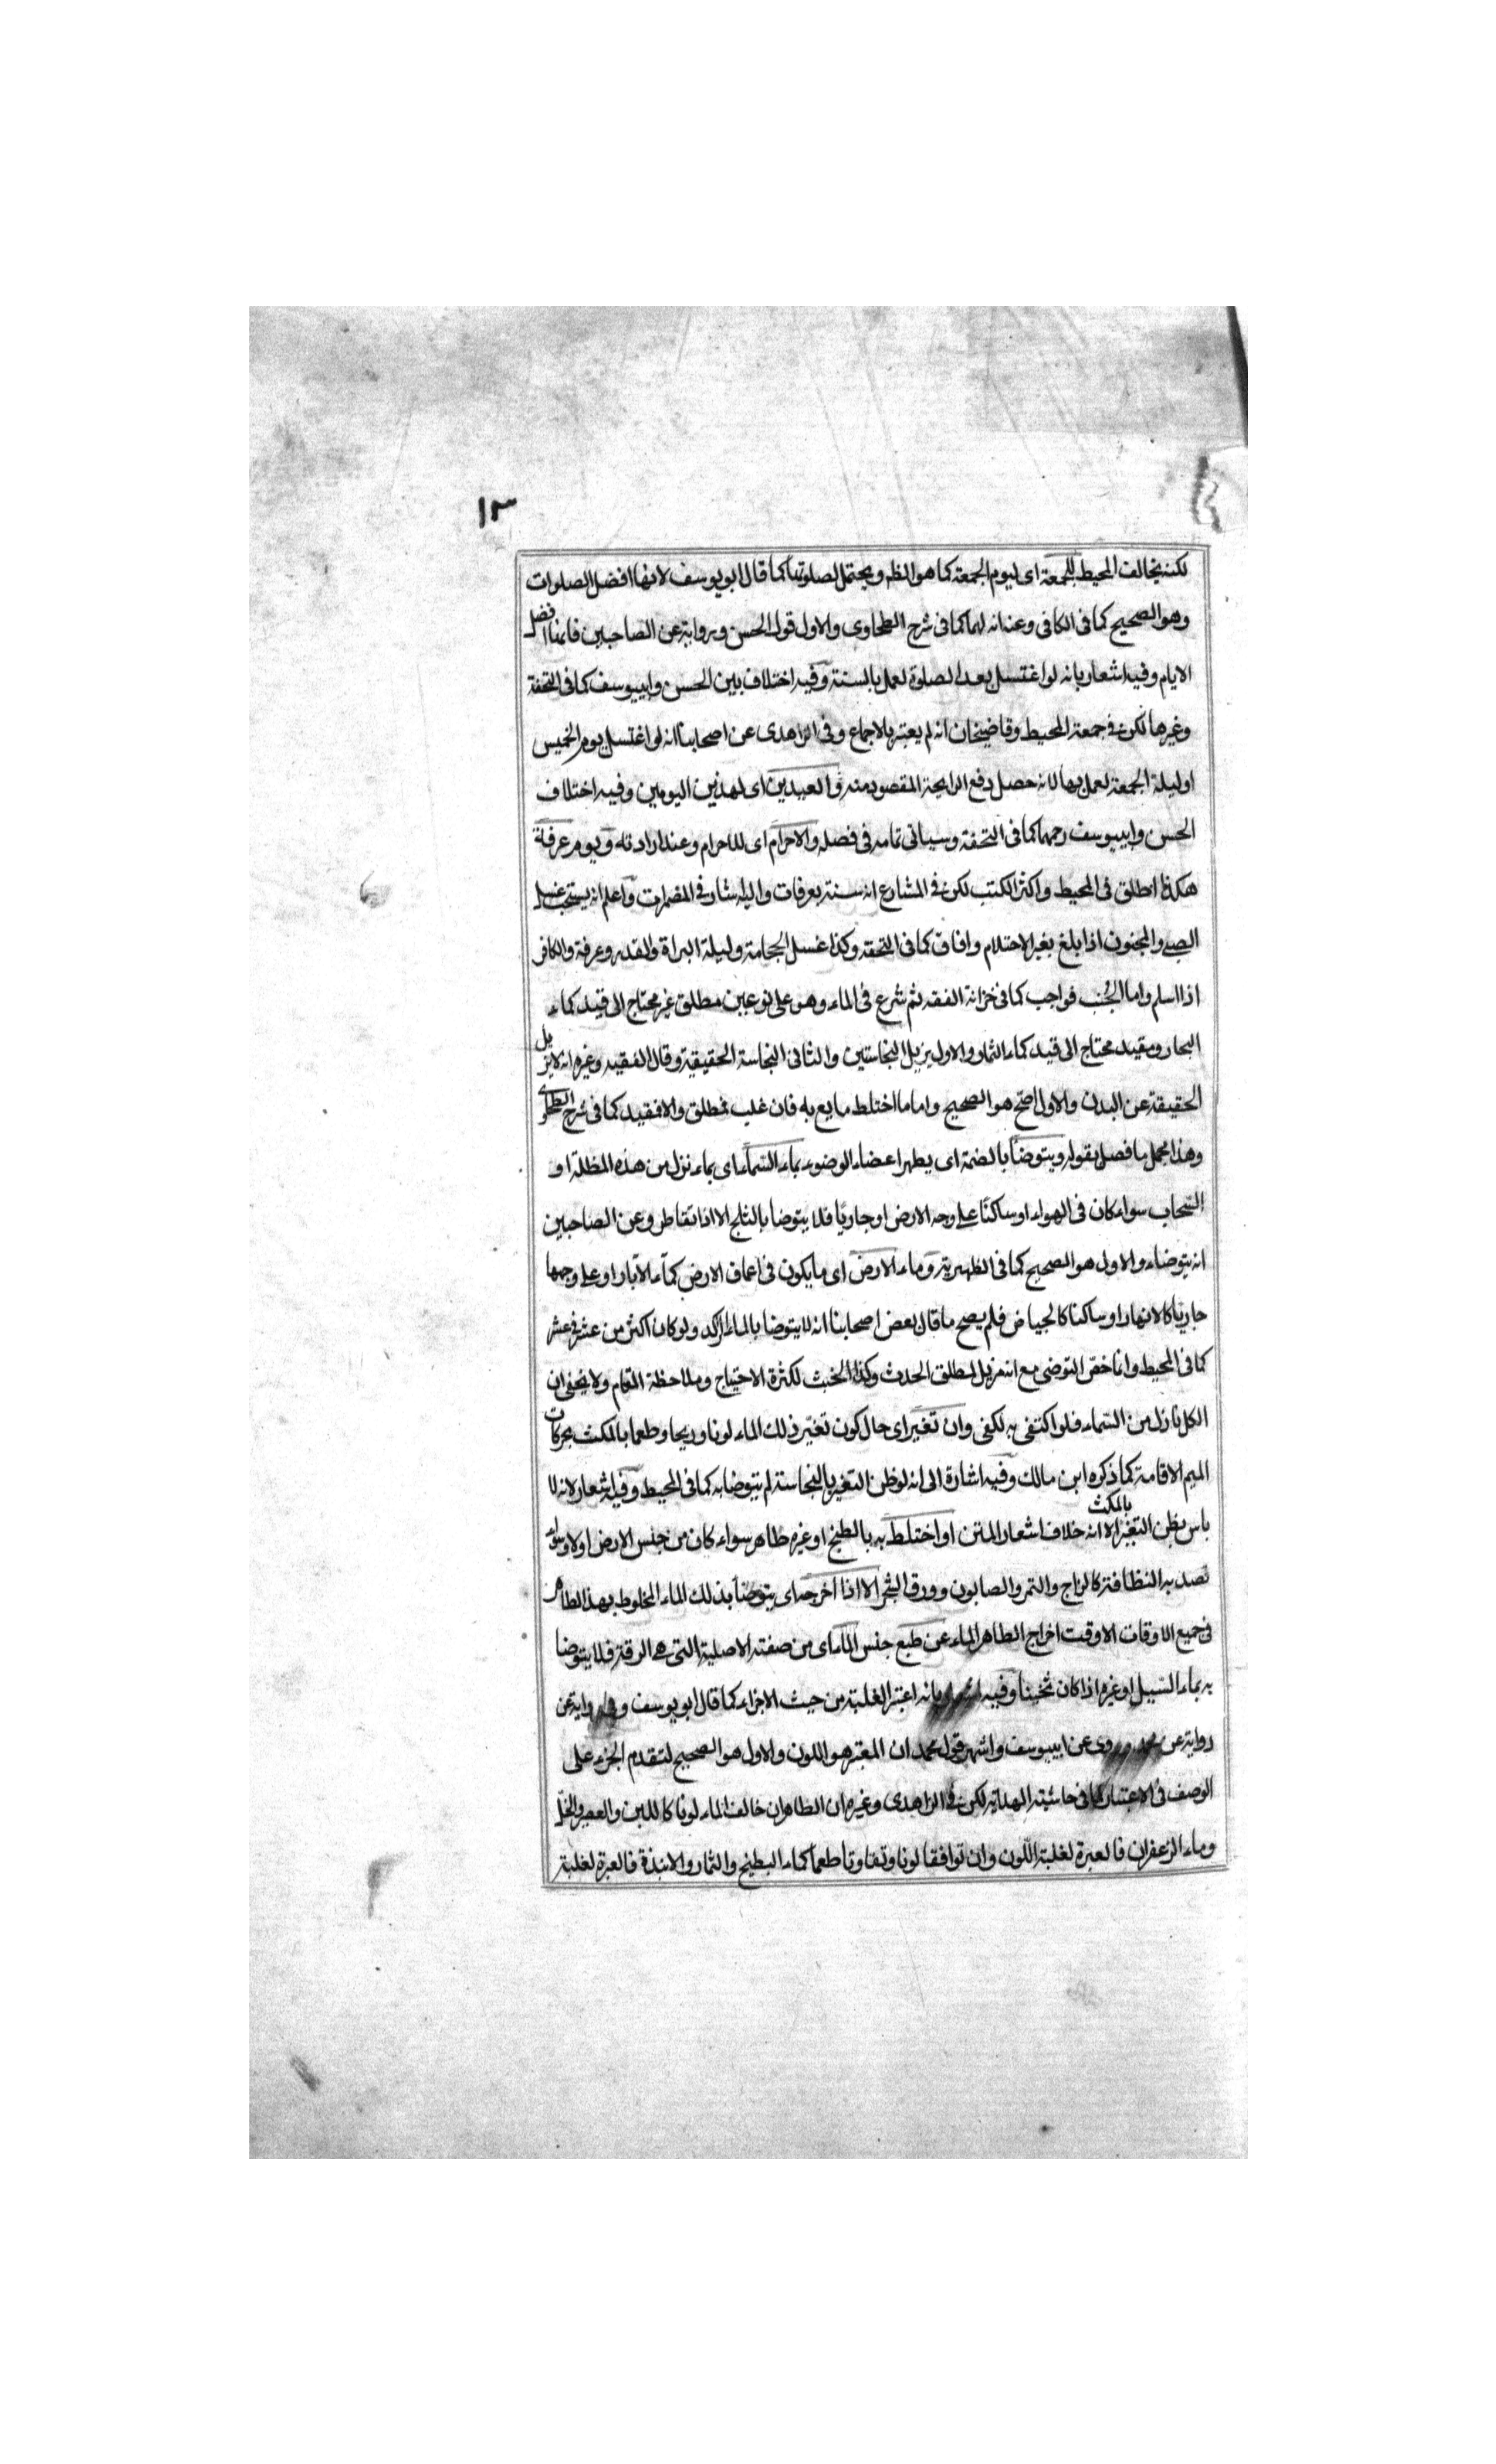 ١٣
لكنه يخالف المحيط للجمعة اى ليوم الجمعة كما هو الظ ويحتمل لصلوتها كما قال ابو يوسف لانها افضل الصلوات
وهو الصحيح كما فى الكافى وعنه انه لهما كما فى شرح الطحاوى والاول قول الحسن ورواية عن الصاحبين فانها افضل
الايام وفيه اشعار بانه لو اغتسل بعد الصلوة لعمل بالسنة وفيه اختلاف بين الحسن وابييوسف كما فى التحفة
وغيرها لكن فى جمعة المحيط وقاضيخان انه لم يعتبر بالاجماع وفى الزاهدى عن اصحابنا انه لو اغتسل يوم الخميس
او ليلة الجمعة لعمل بها لانه حصل دفع الرايحة المقصود منه والعيدين اى لهذين اليومين وفيه اختلاف
الحسن وابييوسف رحمهما كما فى التحفة وسياتى تمامه فى فصله والاحرام اى للاحرام وعند ارادته ويوم عرفة
هكذا اطلق فى المحيط واكثر الكتب لكن فى المشارع انه سنة بعرفات واليه اشار فى المضمرات واعلم انه يستحب غسل
الصبى والمجنون اذا بلغ بغير الاحتلام وافاق كما فى التحفة وكذا غسل الحجامة وليلة البراة والقدر وعرفة والكافر
اذا اسلم واما الجنب فواجب كما فى خزانة الفقه ثم شرع فى الماء وهو على نوعين مطلق غير محتاج الى قيد كماء
البحار ومقيد محتاج الى قيد كماء الثمار والاول يزيل النجاستين والثانى النجاسة الحقيقية وقال الفقيه وغيره انه لا يزيل
الحقيقة عن البدن والاول اصح هو الصحيح واما ما اختلط مايع به فان غلب فمطلق والا فمقيد كما فى شرح الطحاوى
وهذا مجمل ما فصل بقوله ويتوضأ بالضمة اى يطهر اعضاء الوضوء بماء السماء اى بماء نزل من هذه المظلة او
السحاب سواء كان فى الهواء او ساكنا على وجه الارض او جاريا فلا يتوضا بالثلج الا اذا تقاطر وعن الصاحبين
انه يتوضاء والاول هو الصحيح كما فى الظهيرية وماء الارض اى ما يكون فى اعماق الارض كماء الآبار او على وجهها
جاريا كالانهار او ساكنا كالحياض فلم يصح ما قال بعض اصحابنا انه لا يتوضا بالماء الراكد ولو كان اكثر من عشر فى عشر
كما فى المحيط وانما خص التوضى مع انه مزيل لمطلق الحدث وكذا الخبث لكثرة الاحتياج وملاحظة المقام ولا يخفى ان
الكل نازل من السماء فلو اكتفى به لكفى وان تغير اى حال كون تغير ذلك الماء لونا وريحا وطعما بالمكث بحركات
الميم الاقامة كما ذكره ابن مالك وفيه اشارة الى انه لو ظن التغير بالنجاسة لم يتوضا به كما فى المحيط وفيه اشعار لانه لا
باس بظن التغير بالمكث الا انه خلاف اشعار المتن او اختلط به بالطبخ او غيره طاهر سواء كان من جنس الارض او لا وسواء
قصد به النظافة كالزاج والتمر والصابون وورق الشجر الا اذا اخرجه اى يتوضأ بذلك الماء المخلوط بهذا الطاهر
فى جميع الاوقات الا وقت اخراج الطاهر الماء عن طبع جنس الماء اى من صفته الاصلية التى هى الرقة فلا يتوضا
به بماء السيل او غيره اذا كان ثخينا وفيه اشعار بانه اعتبر الغلبة من حيث الاجزاء كما قال ابو يوسف وفى رواية عن
رواية عن محمد وروى عن ابييوسف واشهر قول محمد ان المعتبر هو اللون والاول هو الصحيح لتقدم الجزء على
الوصف فى الاعتبار كما فى حاشية الهداية لكن فى الزاهدى وغيره ان الطاهر ان خالف الماء لونا كاللبن والعصير والخل
وماء الزعفران فالعبرة لغلبة اللون وان توافقا لونا وتفاوتا طعما كماء البطيخ والثمار والانبذة فالعبرة لغلبة